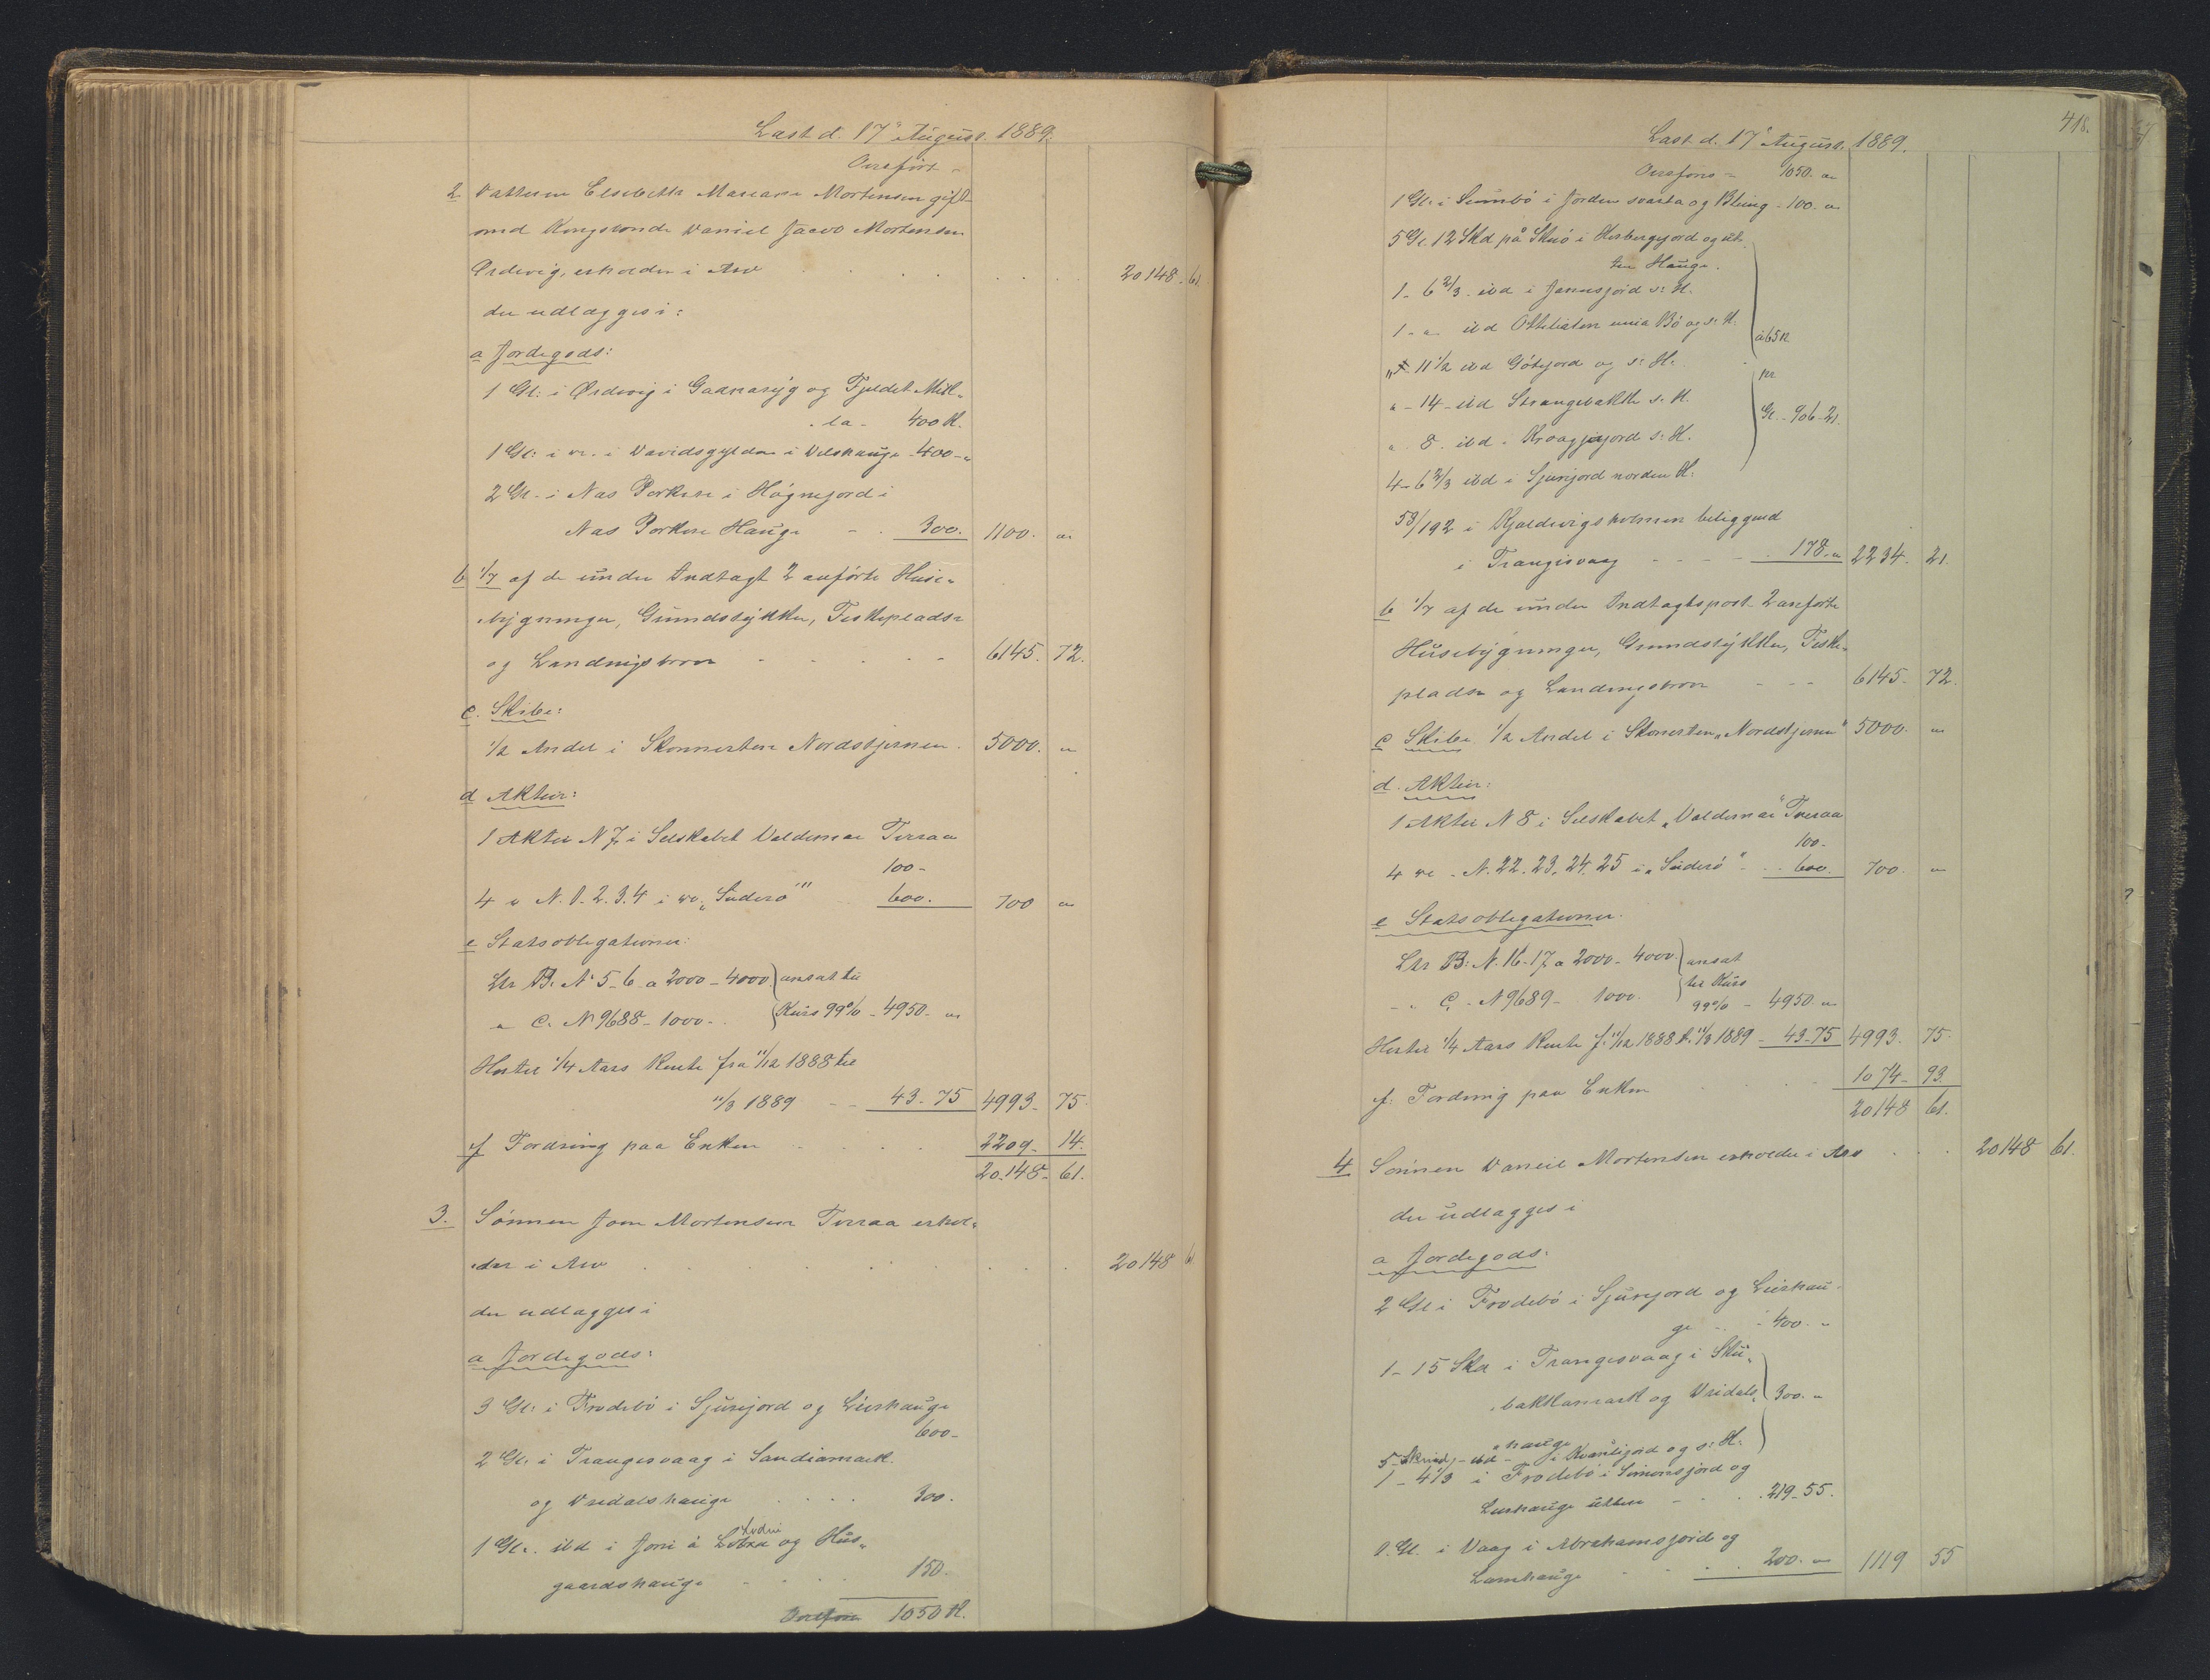 Læst d. 17 August. 1889.
Overført -
2 Datteren Elsebeth Mariane Mortensen gift
med Kongsbonde Daniel Jacob Mortensen
Ørdevig, erholder i Arv 20148. 61.
der udlægges i:
a Jordegods:
1 Gl: i Ørdevig i og Fjeldet Mid-
la - 400 K.
1 Gl: i do. i Davidsgylden i - 400 - "
2 Gl. - i Næs Porkere i Høgnejord i
Næs Porkere Hauge - 300. 1100. "
b 1/7 af de under Indtægt 2 anførte Huse-
bygninger, Grundstykker, Fiskepladse
og Landingsbroer 6145. 72.
c. Skibe:
1/2 Andel i Skonnerten Nordstjernen. 5000. "
d Aktier:
1 Aktie N 7 i Selskabet Valdemar Tveraa
100 -
4 " N. 1. 2. 3. 4 i do. „Suderø" 600. 700 "
e Statsobligationer:
Ltr B. N 5-6 a 2000 - 4000 ansat til
" C. N 9688 - 1000 - Kurs 99% - 4950 - "
Hertil 1/4 Aars Rente fra 11/12 1888 til
11/3 1889 - - 43. 75 4993 - 75
f Fordring paa Enken 2209 - 14.
20.148 - 61.
3. Sønnen Joen Mortensen Tveraa erhol-
der i Arv 20148 61
der udlægges i
a Jordegods:
3 Gl: i Frodebø i Sjurejord og Leirhauge
600 -
2 Gl: i Trangesvaag i Sandiamark
og Dridalshauge 300.
1 Gl. ibd i Joni à og Hus-
gaardshauge 150.
Overføres 1050 K.
418.
Læst d. 17 August. 1889.
Overføres - 1050. "
1 Gl: i Sumbø i Jorden svarta og Bleing - 100. "
5 Gl. 12 Skd på Skuø i Herbergjord og ut-
ten Hauge.
1 - 6 2/3 ibd i Janusjord s: H.
1 - " - ibd Bø og s: H. à 65 K
" - 11 1/2 ibd Gøtejord og s: H. pr
" - 14 - ibd s. H. Gl. - 906 - 21
" 8. ibd i s: H.
4 - 6 2/3 ibd i Sjurijord norden H:
53/192 i Kjaldevigsholmen beliggend
i Trangisvaag - - - 178. " 2234. 21.
b 1/7 af de under Indtægtspost 2 anførte
Husebygninger, Grundstykker, Fiske-
pladse og Landingsbroer - - - 6145 - 72.
c Skibe 1/2 Andel i Skonnerten „Nordstjernen" 5000. "
d. Aktier:
1 Aktie N 8 i Selskabet „Valdemar" Tveraa
100 -
4 do - N. 22. 23. 24. 25 i „Suderø" - 600. 700. "
e Statsobligationer.
Ltr B: N. 16-17 a 2000 - 4000 ansat
- " C. - N 9689 - 1000. til Kurs
99% - 4950. "
Hertil 1/4 Aars Rente f. 11/12 1888 t. 11/3 1889 - 43 - 75 4993. 75.
f. Fordring paa Enken 1074 - 93.
20148 61.
4 Sønnen Daniel Mortensen erholder i Arv 20148 61.
der udlægges i
a Jordegods:
2 Gl i Frodebø i Sjurejord og Leirhau-
ge 400. "
1 - 15 Skd i Trangesvaag i Sku-
bakkamark og Dridals- 300. "
hauge
5 - ibd - i og s: H:
1 - 4 1/3 i Frodebø i Simonsjord og
Leirhauge utten - 219 - 55.
1. Gl. i Vaag i Abrahamsjord og
Lamhauge 200. " 1119 55